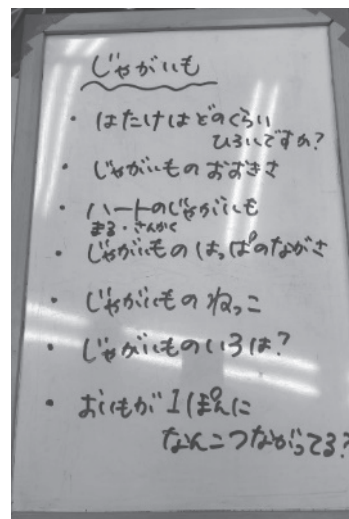 じゃがいも
・はたけはどのくらい
ひろいですか?
・じゃがいものおおきさ
・ハートのじゃがいも
まる・さんかく
・じゃがいものはっぱのながさ
・じゃがいものねっこ
・じゃがいものいろは?
・おいもが1ぽんに
なんこつながってる?